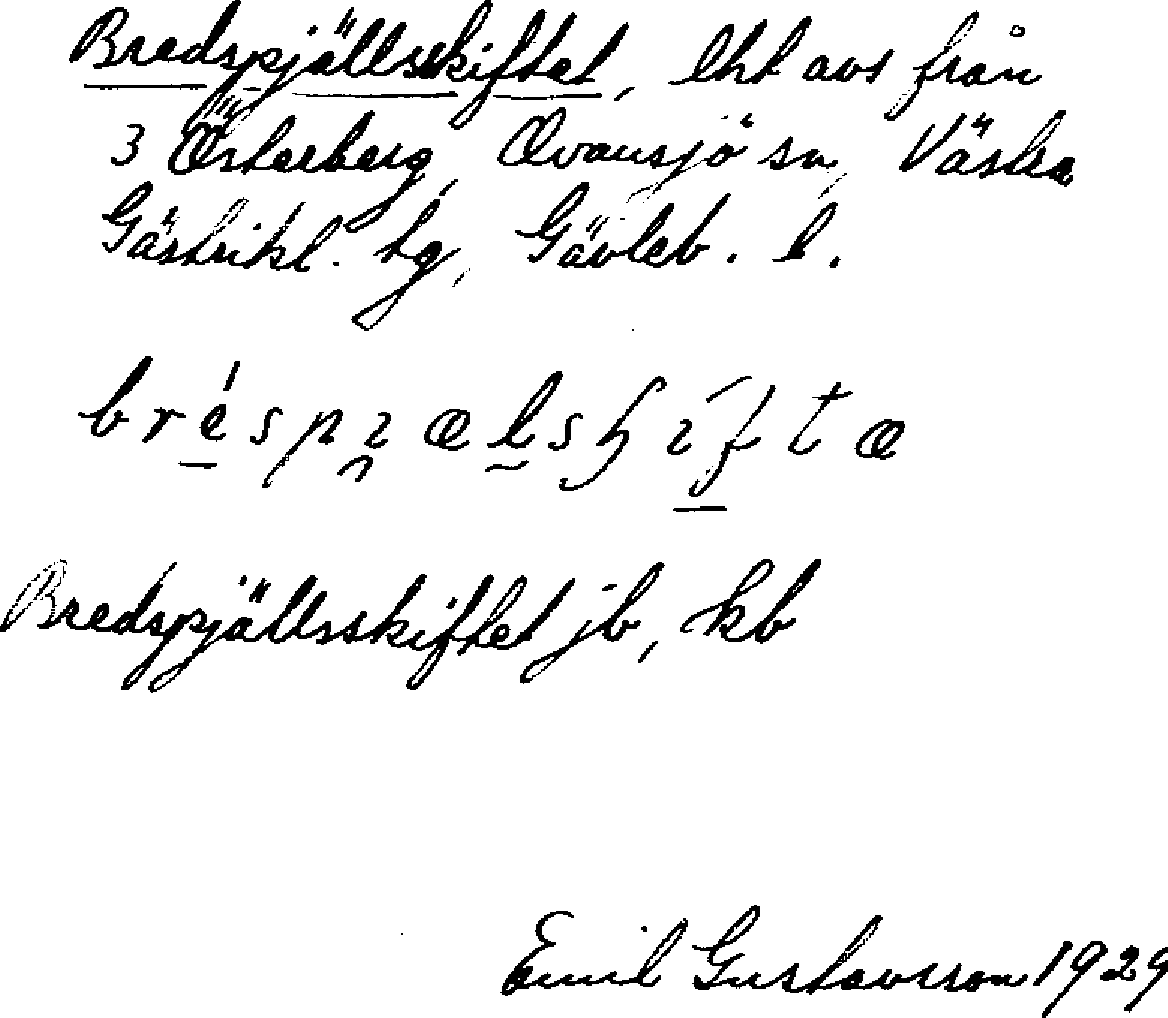 Bredspjällsskiftet, lht avs från
3 Österberg, Ovansjö sn, Västra
Gästrikl. tg, Gävleb. l.
bréspɪælsꞕɪftæ
Bredspjällsskiftet jb, kb
Emil Gustavsson 1929